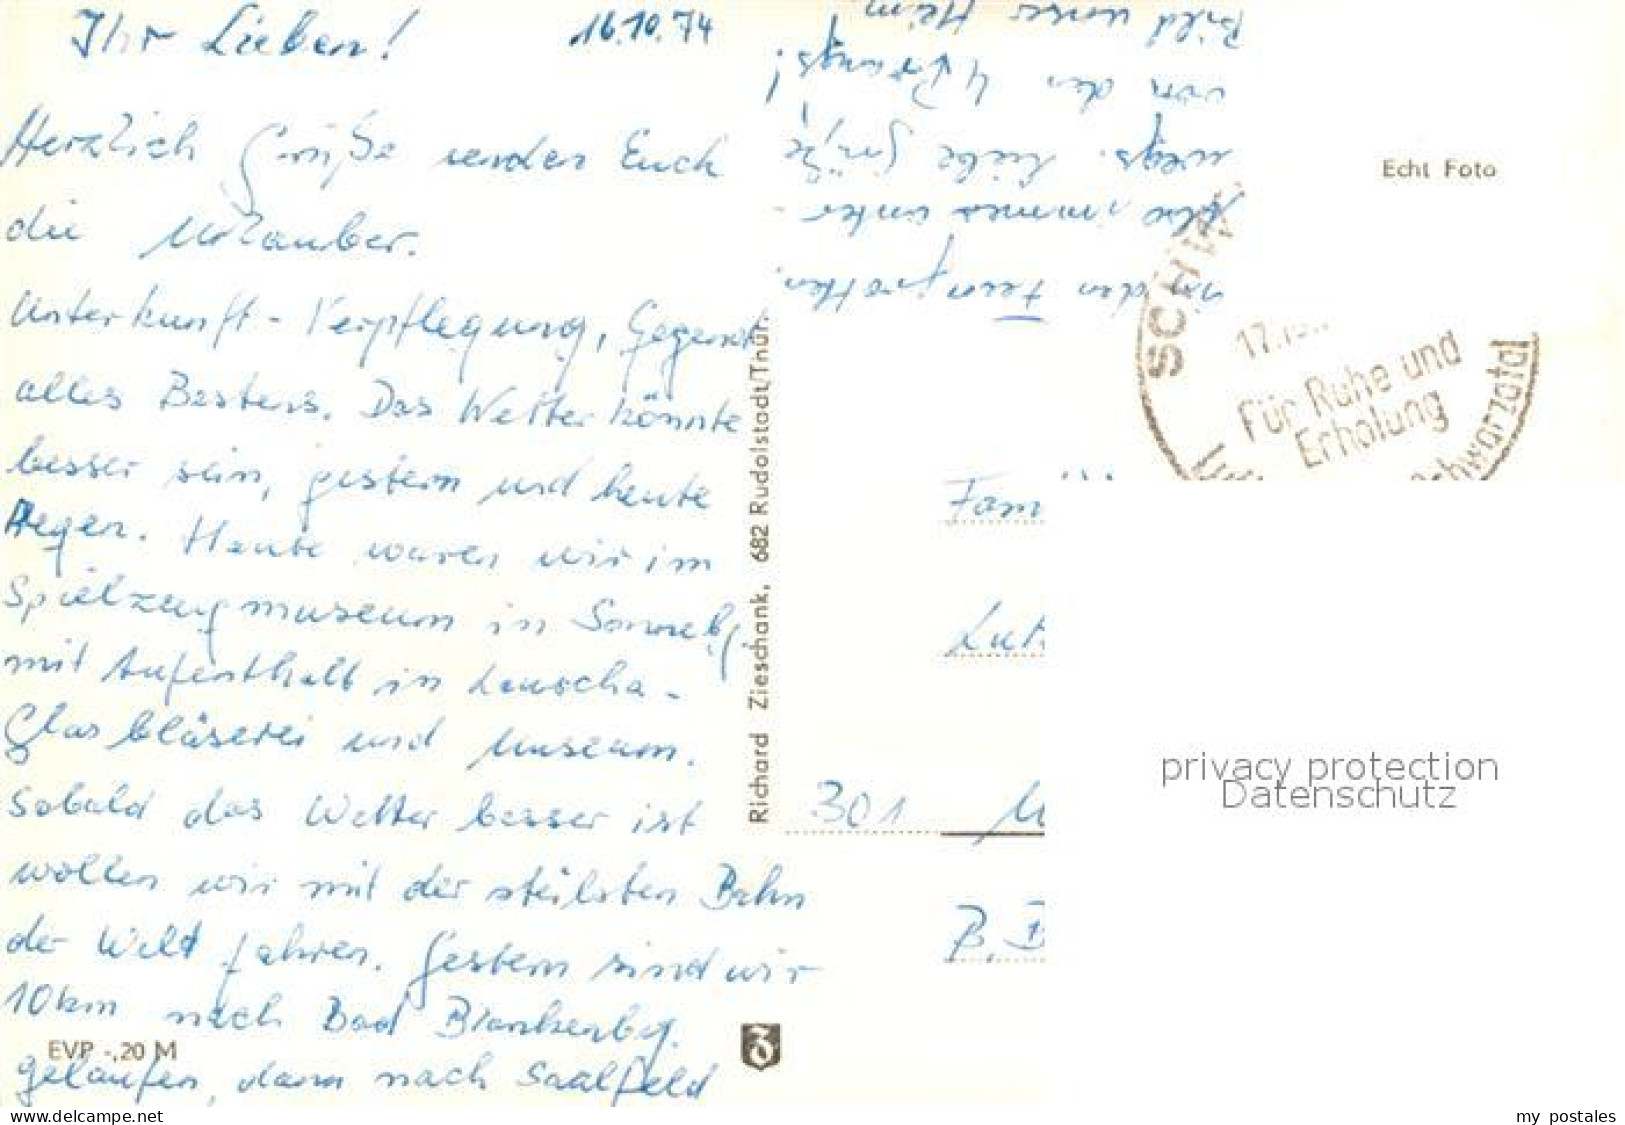 Ihr Lieben! 16.10.74
Herzlich Grüße senden Euch
die Urlauber.
Unterkunft - Verpflegung, Gegend
alles Bestens. Das Wetter könnte
besser sein, gestern und heute
Regen. Heute waren wir im
Spielzeugmuseum in Sonnebg.
mit Aufenthalt in Lauscha -
Glasbläserei und Museum.
Sobald das Wetter besser ist
wollen wir mit der steilsten Bahn
der Welt fahren. Gestern sind wir
10km nach Bad Blankenbg.
gelaufen, dann nach Saalfeld
in den Feengrotten.
Also immer unter-
wegs. Liebe Grüße
von den 4
Bild unser Heim
EVP -,20 M
Richard Zieschank, 682 Rudolstadt/Thür.
Echt Foto
SCHW
17.10
Für Ruhe und
Erholung
Schwarzatal
Fam
301 M
privacy protection
Datenschutz
www.delcampe.net
my postales